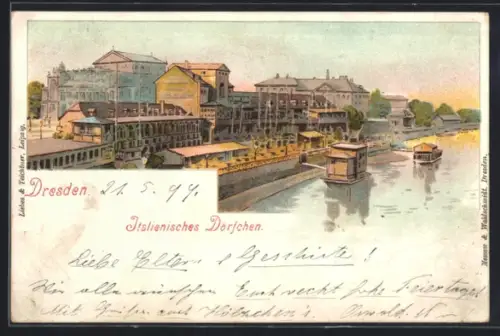 Dresden, 21.5.99.
Italienisches Dörfchen.
Liebe Eltern & Geschwister!
Wir alle wünschen Euch recht frohe Feiertage!
Mit Grüßen auch
Oswald
Liebes & Teichtner, Leipzig.
Menow & Waldschmidt, Dresden.